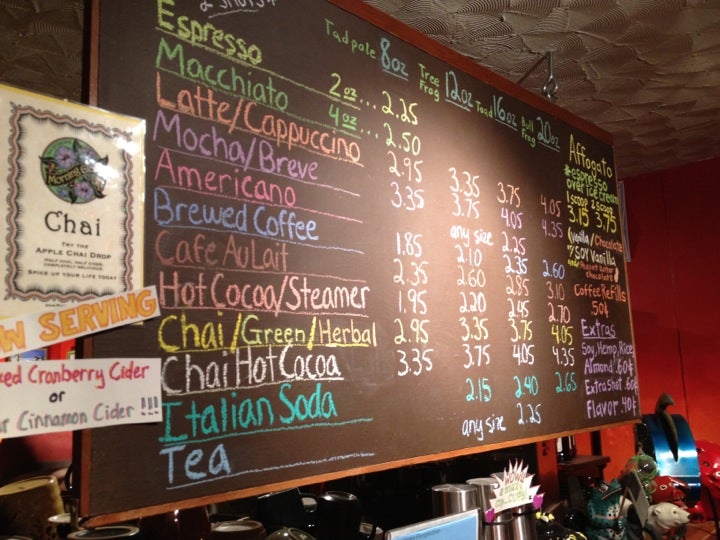 2 shots
Tadpole 8oz Tree Frog 12oz Toad 16oz Bull Frog 20oz
Espresso 2oz... 2.25
Macchiato 4oz... 2.50
Latte/Cappuccino 2.95 3.35 3.75 4.05
Mocha/Breve 3.35 3.75 4.05 4.35
Americano any size 2.25
Brewed Coffee 1.85 2.10 2.35 2.60
Cafe Au Lait 2.35 2.60 2.85 3.10
Hot Cocoa/Steamer 1.95 2.20 2.45 2.70
Chai/Green/Herbal 2.95 3.35 3.75 4.05
Chai Hot Cocoa 3.35 3.75 4.05 4.35
Italian Soda 2.15 2.40 2.65
Tea any size 2.25
Affogato
*espresso
over ice cream
1 scoop 2 scoops
3.15 3.75
Vanilla/Chocolate
*Soy Vanilla
and/ Peanut Butter
Chocolate
Coffee Refills
50¢
Extras
Soy, Hemp, Rice
Almond .60¢
Extra Shot .60¢
Flavor .40¢
Morning
Chai
TRY THE
APPLE CHAI DROP
HALF CHAI, HALF CIDER,
COMPLETELY DELICIOUS.
SPICE UP YOUR LIFE TODAY
SERVING
Cranberry Cider
or
Cinnamon Cider !!!
WOW!